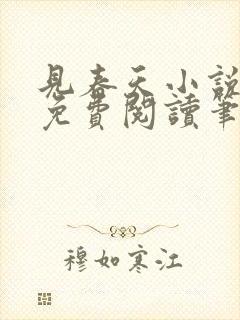 見春天小說
免費閱讀筆
穆如寒江